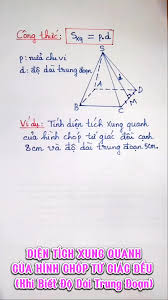 Công thức: Sxq = p.d
p: nửa chu vi
d: độ dài trung đoạn
S
A
B
C
D
M
Ví dụ: Tính diện tích xung quanh
của hình chóp tứ giác đều cạnh
8cm và độ dài trung đoạn 5cm.
DIỆN TÍCH XUNG QUANH
CỦA HÌNH CHÓP TỨ GIÁC ĐỀU
(Khi Biết Độ Dài Trung Đoạn)